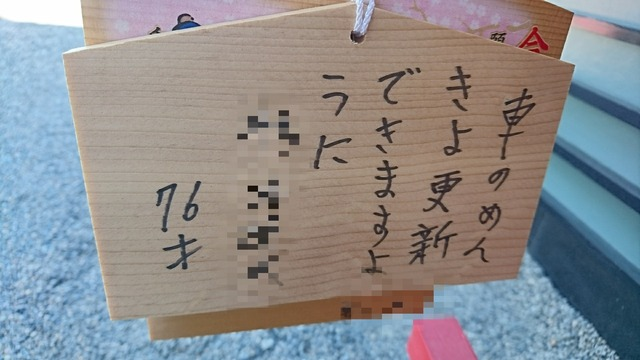 車のめん
きよ更新
できますよ
うに
76
才